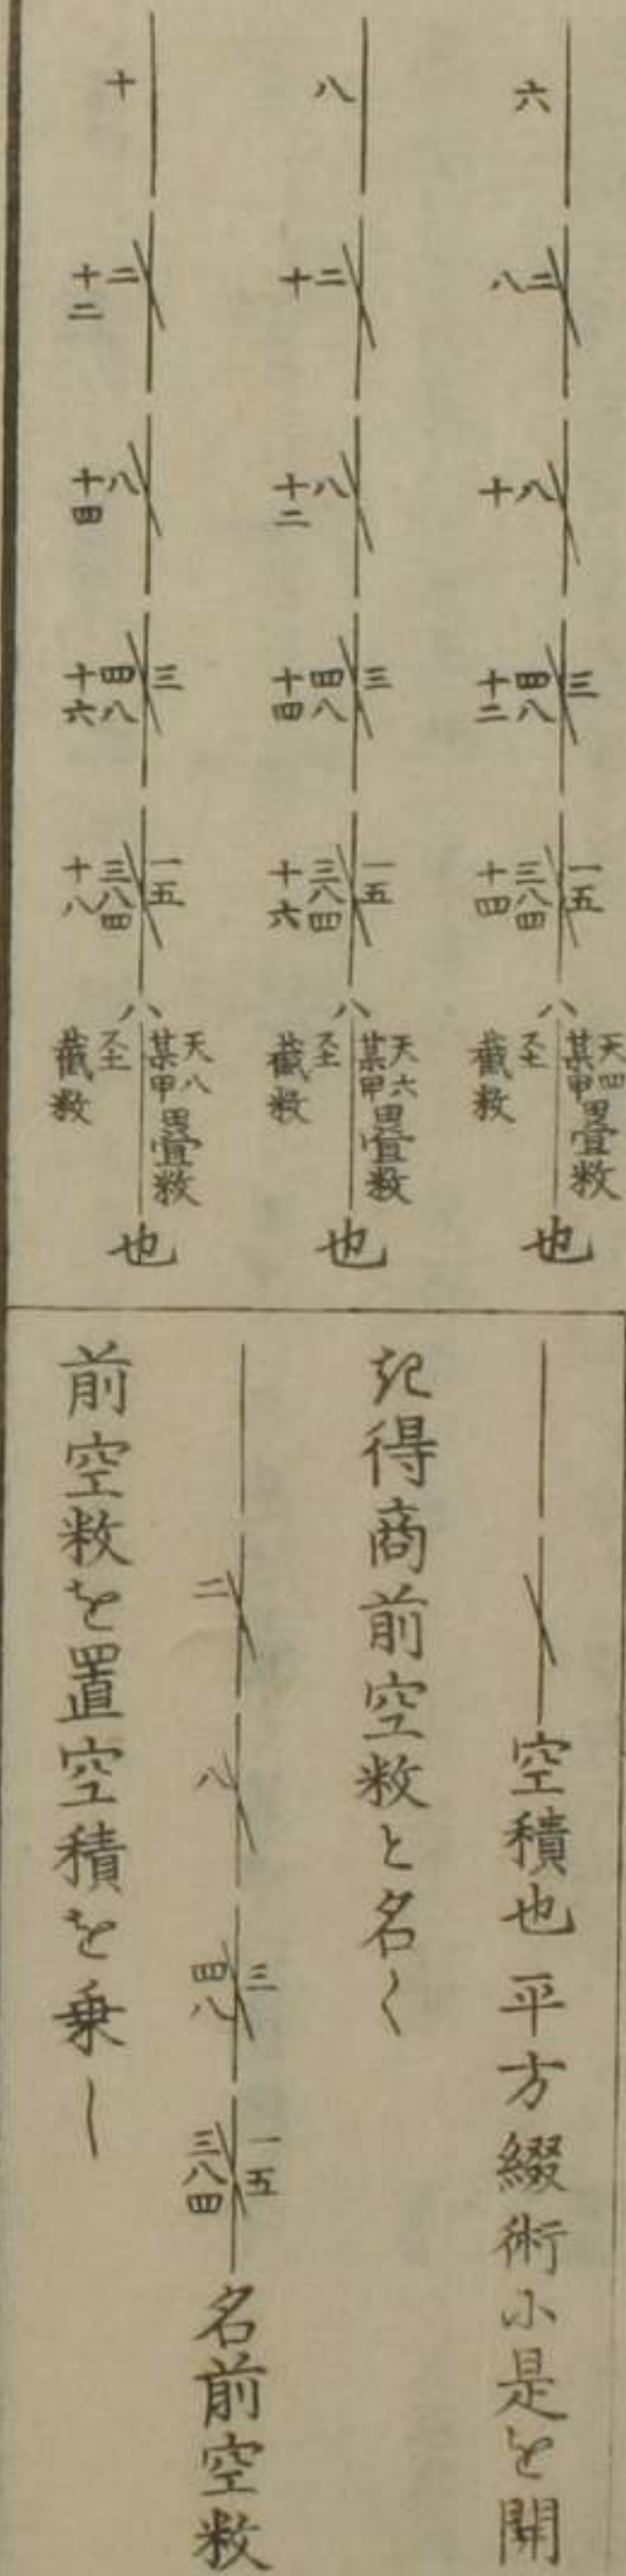 六 二 八 八 十 三 四八 十二 一五 三八四 十四 ハ 天四 某甲 畳数 至 截数 也
八 二 十 八 十二 三 四八 十四 一五 三八四 十六 ハ 天六 某甲 畳数 至 截数 也
十 二 十二 八 十四 三 四八 十六 一五 三八四 十八 ハ 天八 某甲 畳数 至 截数 也
空積也平方綴術に是を開
記得商前空数と名く
二 八 三 四八 一五 三八四 名前空数
前空数を置空積を乗し